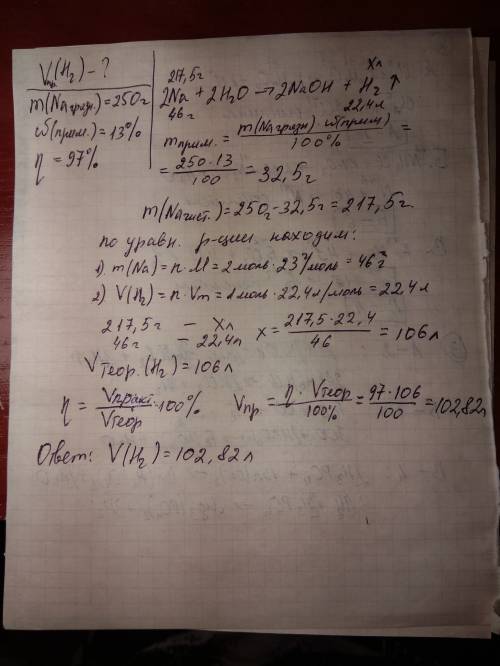 Vпр(H₂) – ?
m(Na грязн.) = 250 г
ω(прим.) = 13%
η = 97%
217,5 г Xл
2Na + 2H₂O → 2NaOH + H₂ ↑
46 г 22,4 л
m прим. = m(Na грязн) · ω(прим) / 100% =
= 250 · 13 / 100 = 32,5 г
m(Na чист.) = 250 г - 32,5 г = 217,5 г.
по уравн. р-ции находим:
1) m(Na) = n · M = 2 моль · 23 г/моль = 46 г
2) V(H₂) = n · Vm = 1 моль · 22,4 л/моль = 22,4 л
217,5 г – Xл X = 217,5 · 22,4 / 46 = 106 л
46 г – 22,4 л
V теор. (H₂) = 106 л
η = Vпракт / Vтеор · 100% Vпр. = η · Vтеор / 100% = 97 · 106 / 100 = 102,82 л
Ответ: V(H₂) = 102,82 л